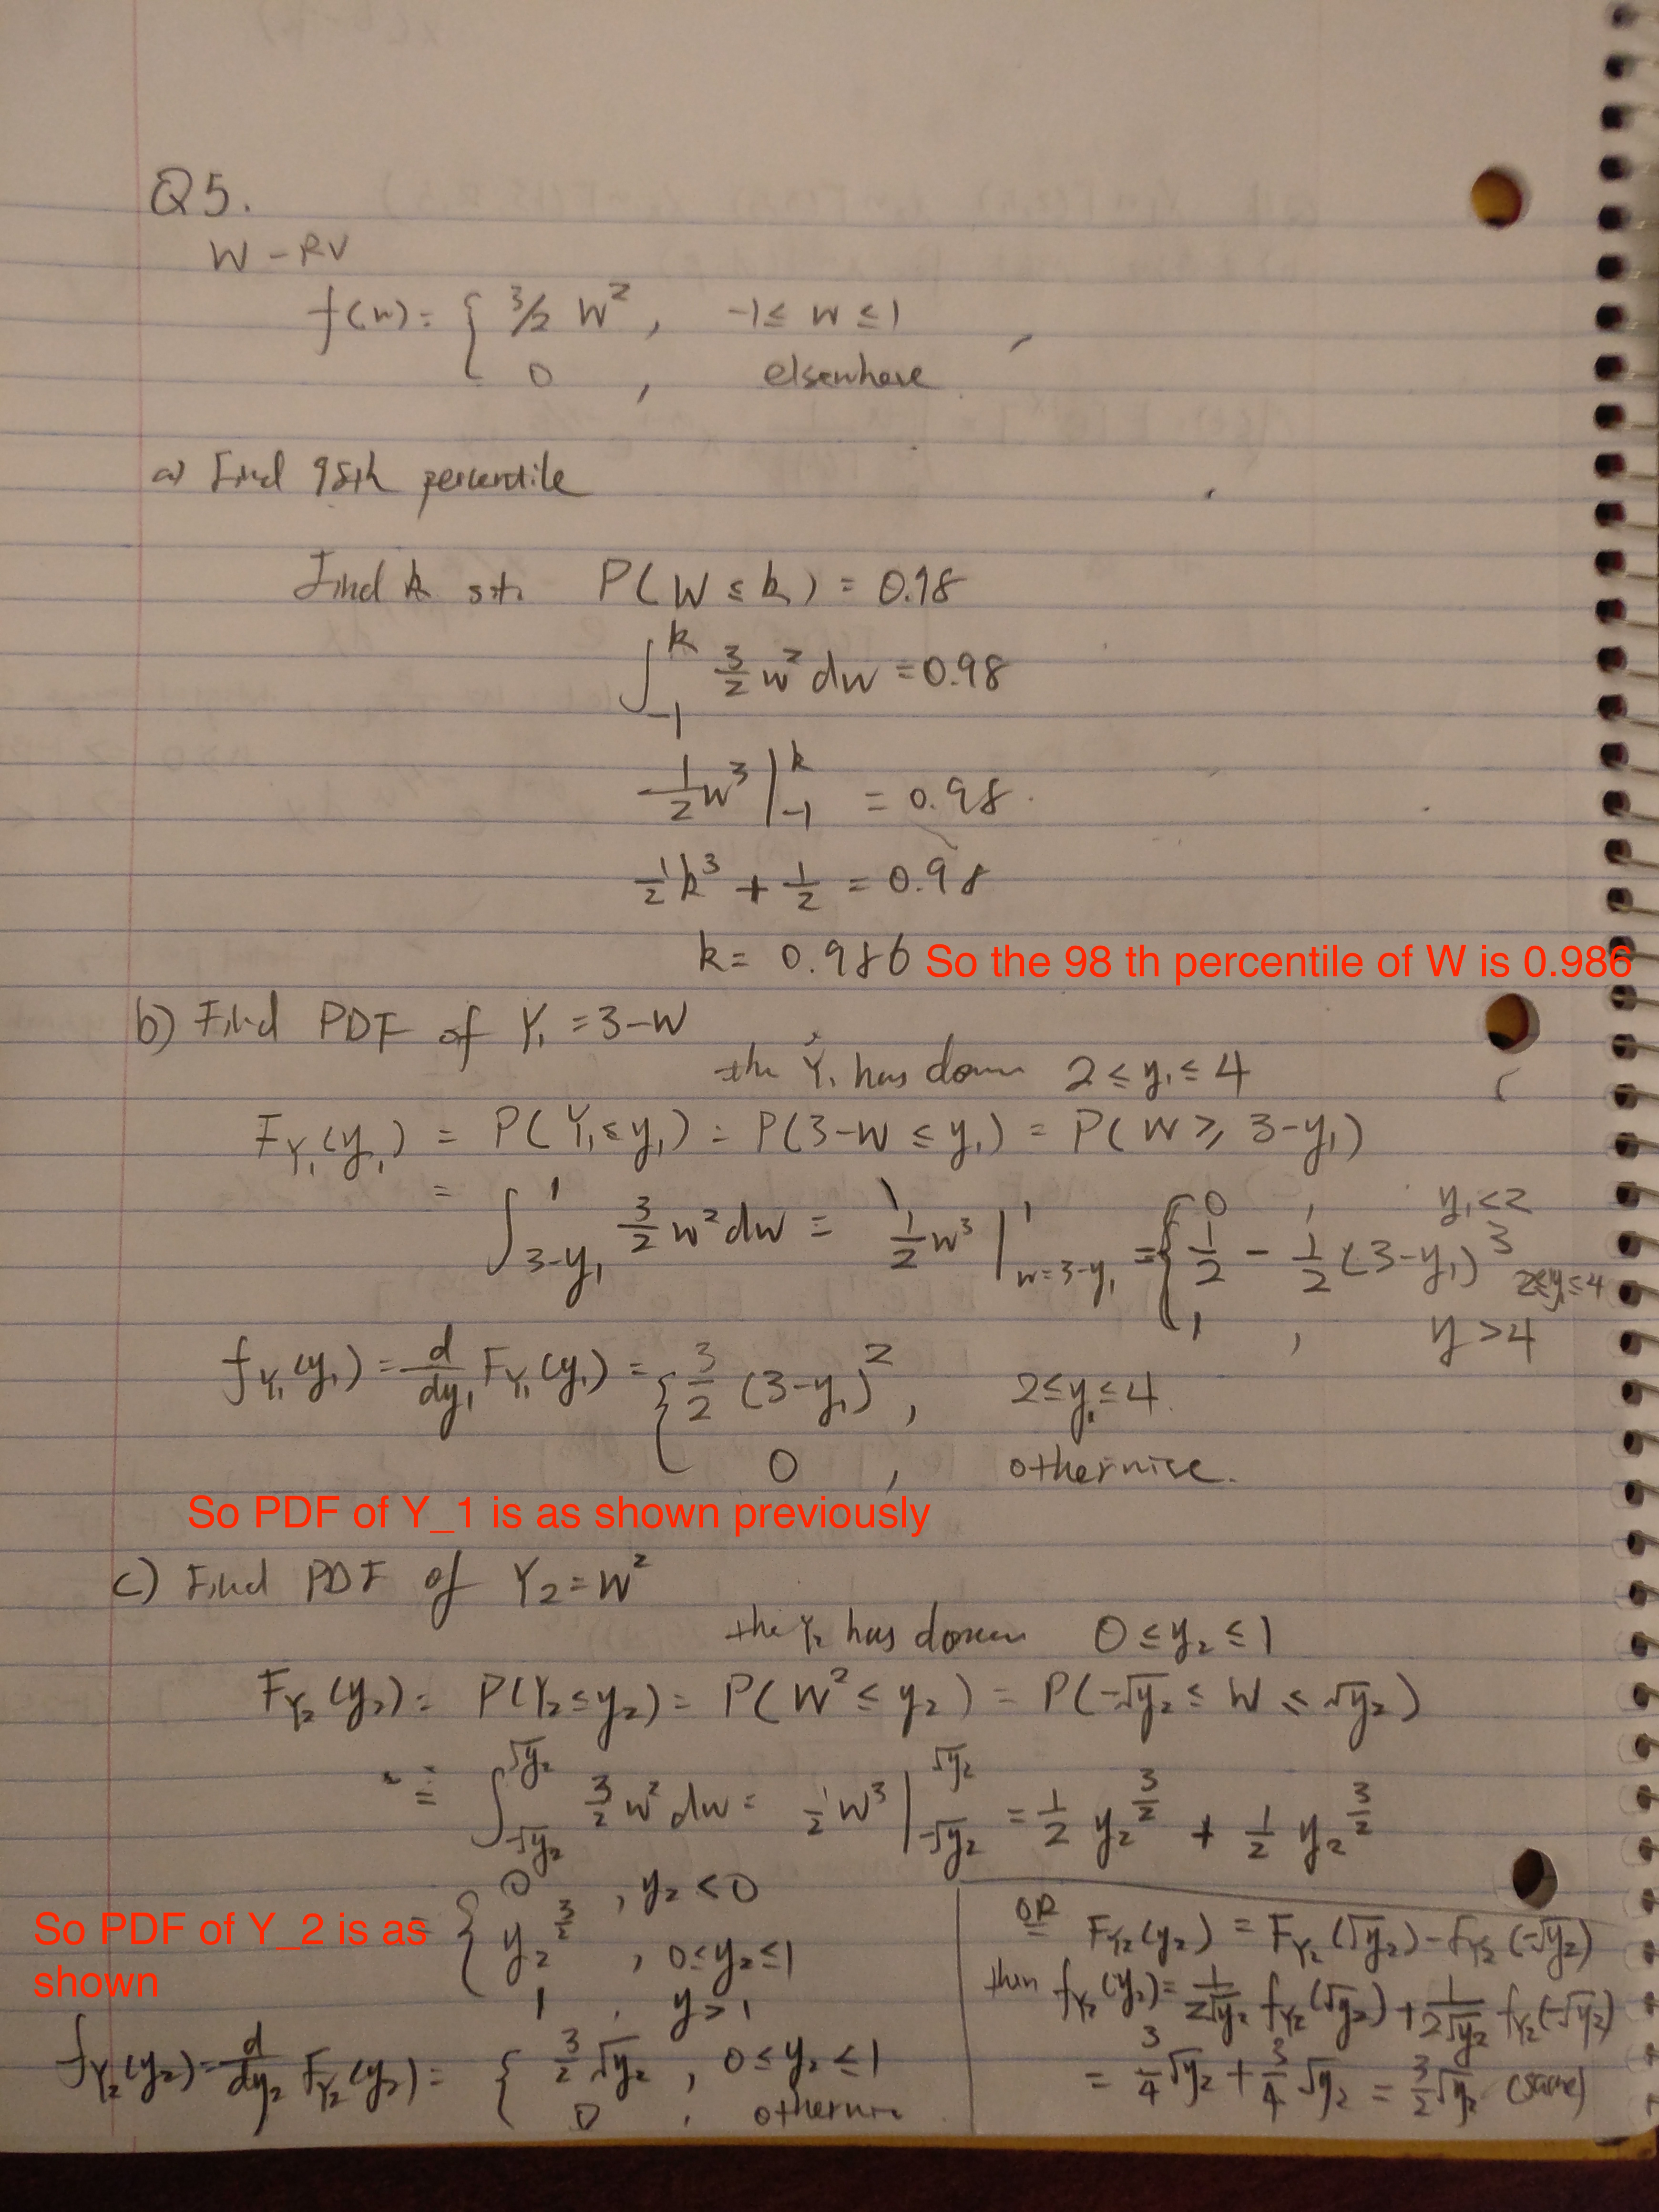 Q5.
W - RV
f(w) = { 3/2 W², -1 ≤ w ≤ 1
0 , elsewhere
a) Find 98th percentile
Find k s.t. P(W ≤ k) = 0.98
∫_{-1}^{k} 3/2 w² dw = 0.98
1/2 w³ |_{-1}^{k} = 0.98
1/2 k³ + 1/2 = 0.98
k = 0.986 So the 98 th percentile of W is 0.986
b) Find PDF of Y₁ = 3-W
the Y₁ has 2 ≤ y₁ ≤ 4
F_{Y₁}(y₁) = P(Y₁ ≤ y₁) = P(3-W ≤ y₁) = P(W ≥ 3-y₁)
= ∫_{3-y₁}^{1} 3/2 w² dw = 1/2 w³ |_{w=3-y₁}^{1} = { 0 , y₁ < 2
1/2 - 1/2 (3-y₁)³ 2≤y₁≤4
1 , y > 4
f_{Y₁}(y₁) = d/dy₁ F_{Y₁}(y₁) = { 3/2 (3-y₁)², 2 ≤ y₁ ≤ 4
0 , otherwise.
So PDF of Y_1 is as shown previously
c) Find PDF of Y₂ = W²
the Y₂ has 0 ≤ y₂ ≤ 1
F_{Y₂}(y₂) = P(Y₂ ≤ y₂) = P(W² ≤ y₂) = P(-√y₂ ≤ W ≤ √y₂)
= ∫_{-√y₂}^{√y₂} 3/2 w² dw = 1/2 w³ |_{-√y₂}^{√y₂} = 1/2 y₂^{3/2} + 1/2 y₂^{3/2}
= { 0 , y₂ < 0
y₂^{3/2} , 0 ≤ y₂ ≤ 1
1 , y > 1
So PDF of Y_2 is as
shown
f_{Y₂}(y₂) = d/dy₂ F_{Y₂}(y₂) = { 3/2 √y₂ , 0 ≤ y₂ ≤ 1
0 , otherwise
OR F_{Y₂}(y₂) = F_{Y₂}(√y₂) - F_{Y₂}(-√y₂)
then f_{Y₂}(y₂) = 1/2√y₂ f_{Y₂}(√y₂) + 1/2√y₂ f_{Y₂}(-√y₂)
= 3/4 √y₂ + 3/4 √y₂ = 3/2 √y₂ (same)